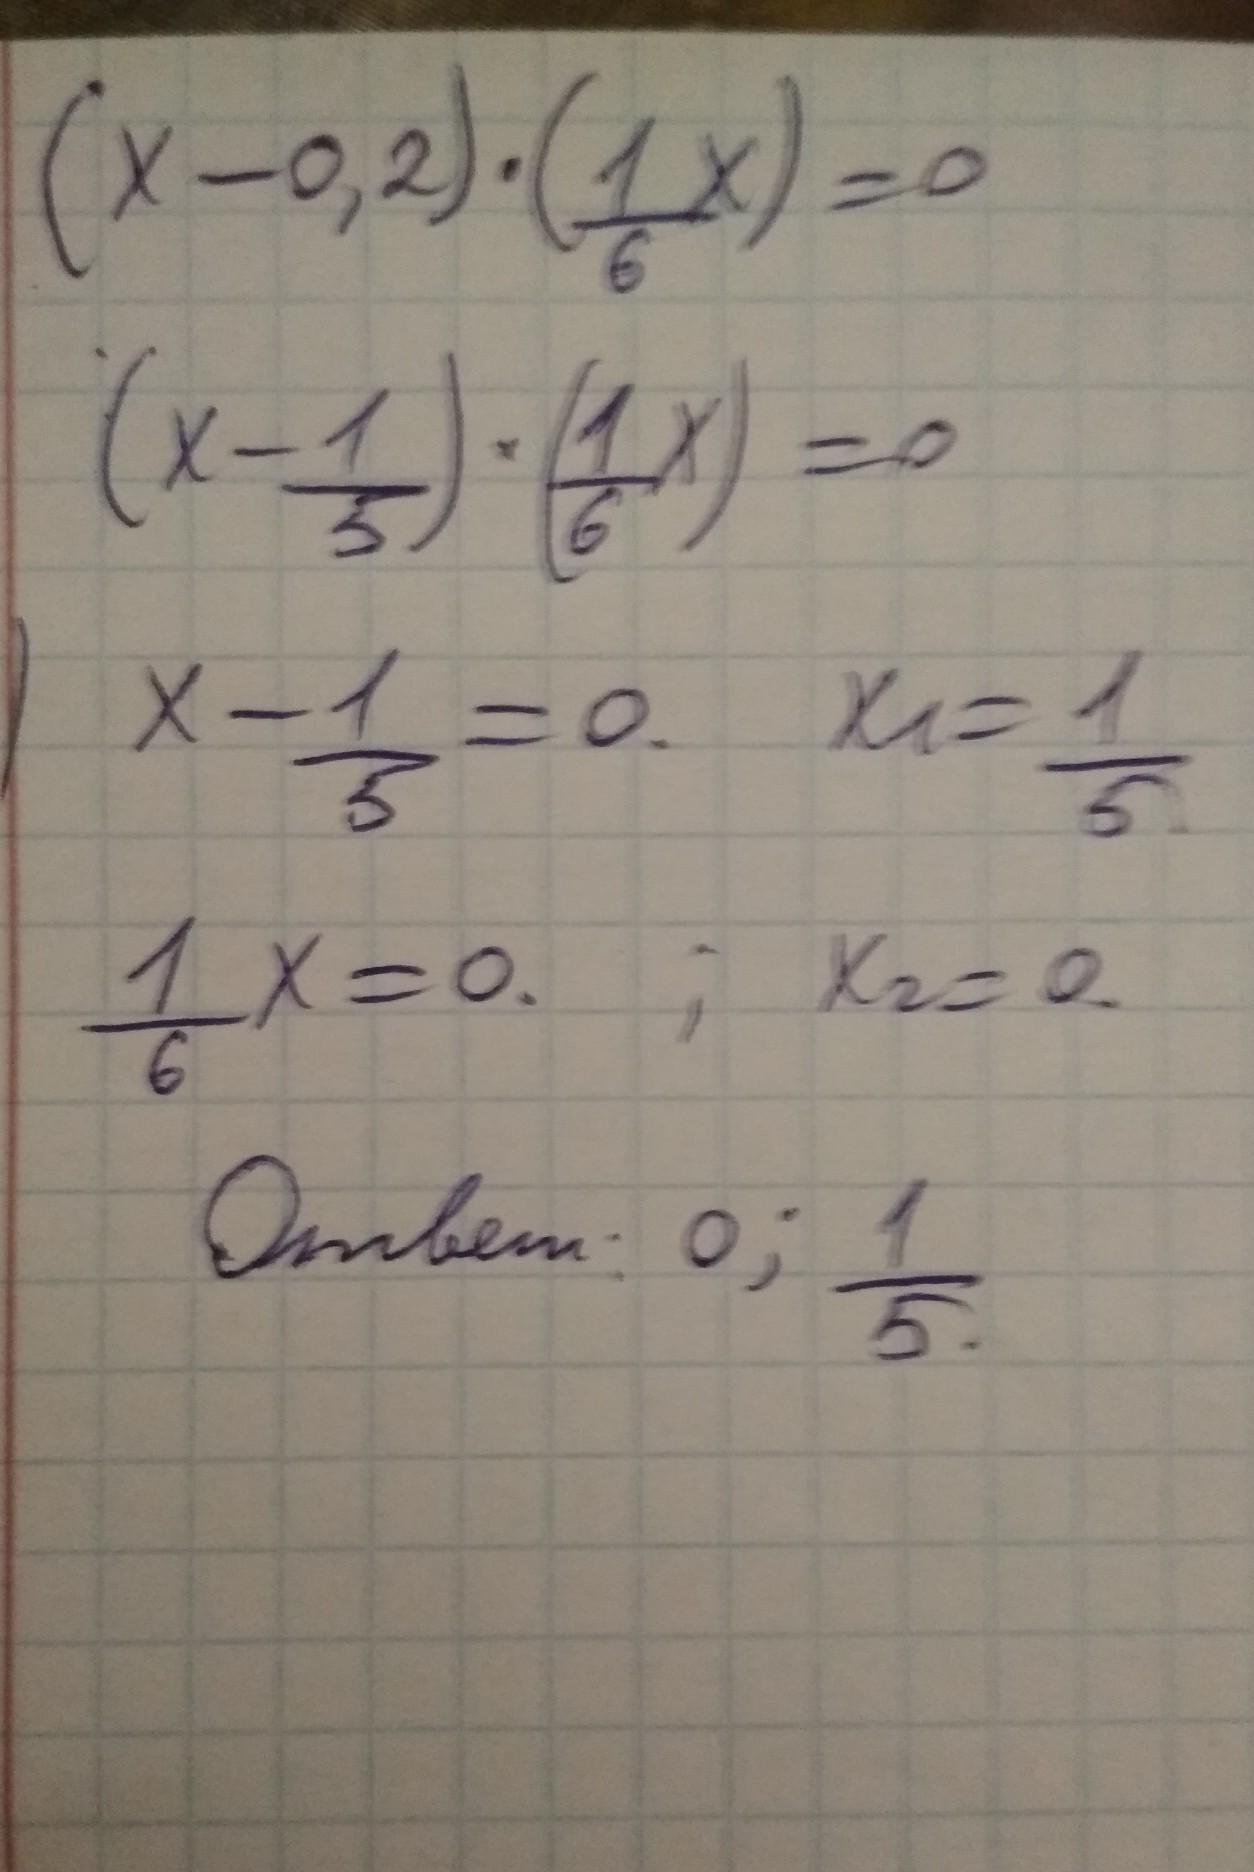 (x - 0,2) · (1/6 x) = 0
(x - 1/5) · (1/6 x) = 0
) x - 1/5 = 0. x1 = 1/5.
1/6 x = 0. ; x2 = 0.
Ответ: 0; 1/5.